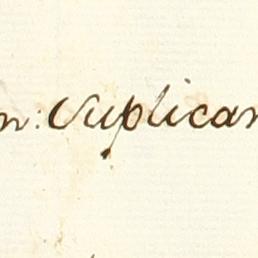 n: Suplican